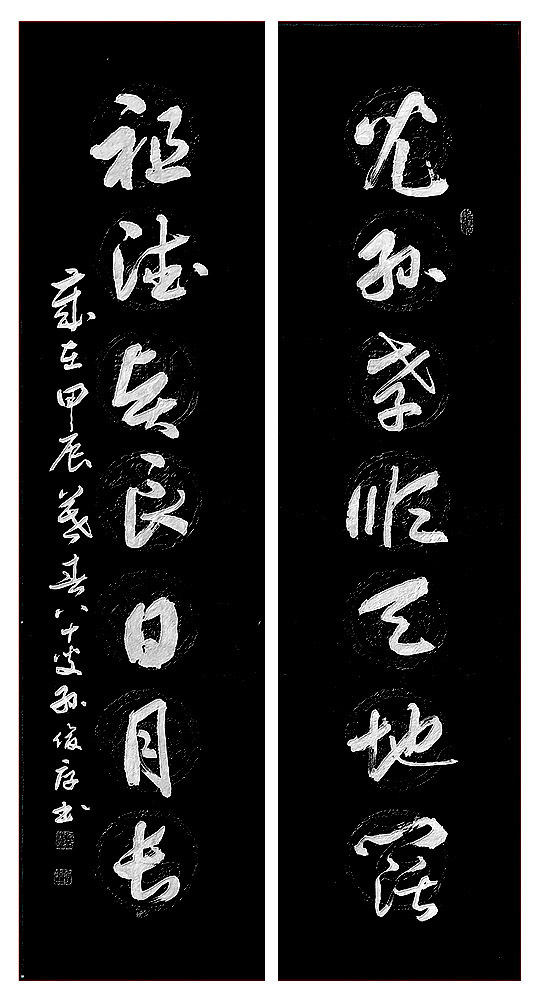 兒孫孝順天地闊
祖德賢良日月長
歲在甲辰暮春八十叟孫俊書